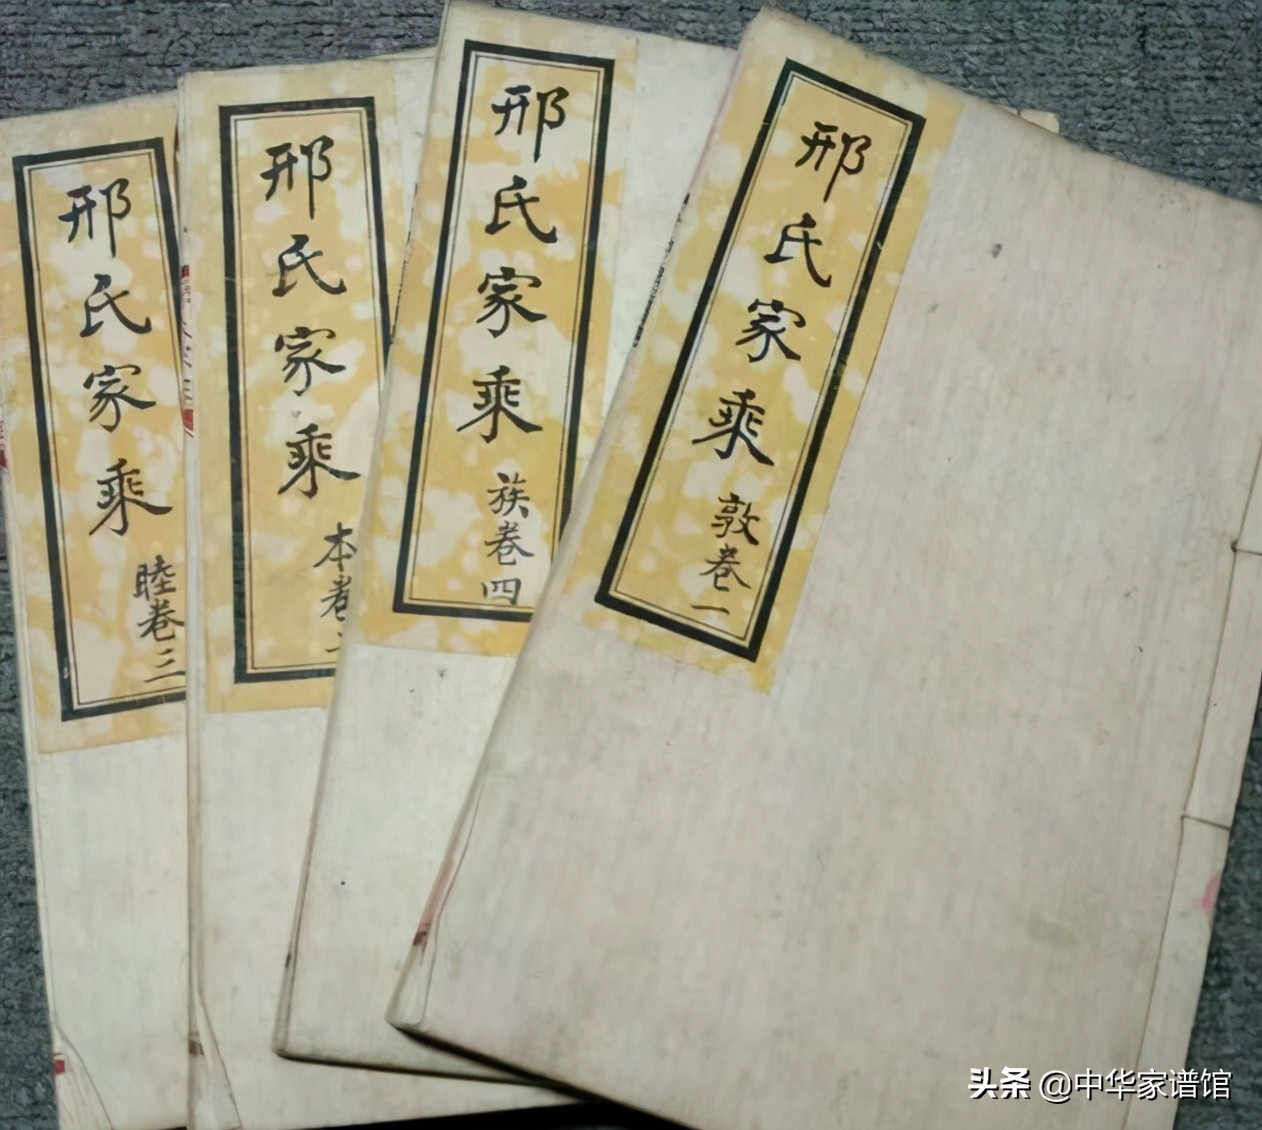 邢氏家乘 敦卷一
邢氏家乘 族卷四
邢氏家乘 本卷
邢氏家乘 睦卷三
头条 @中华家谱馆